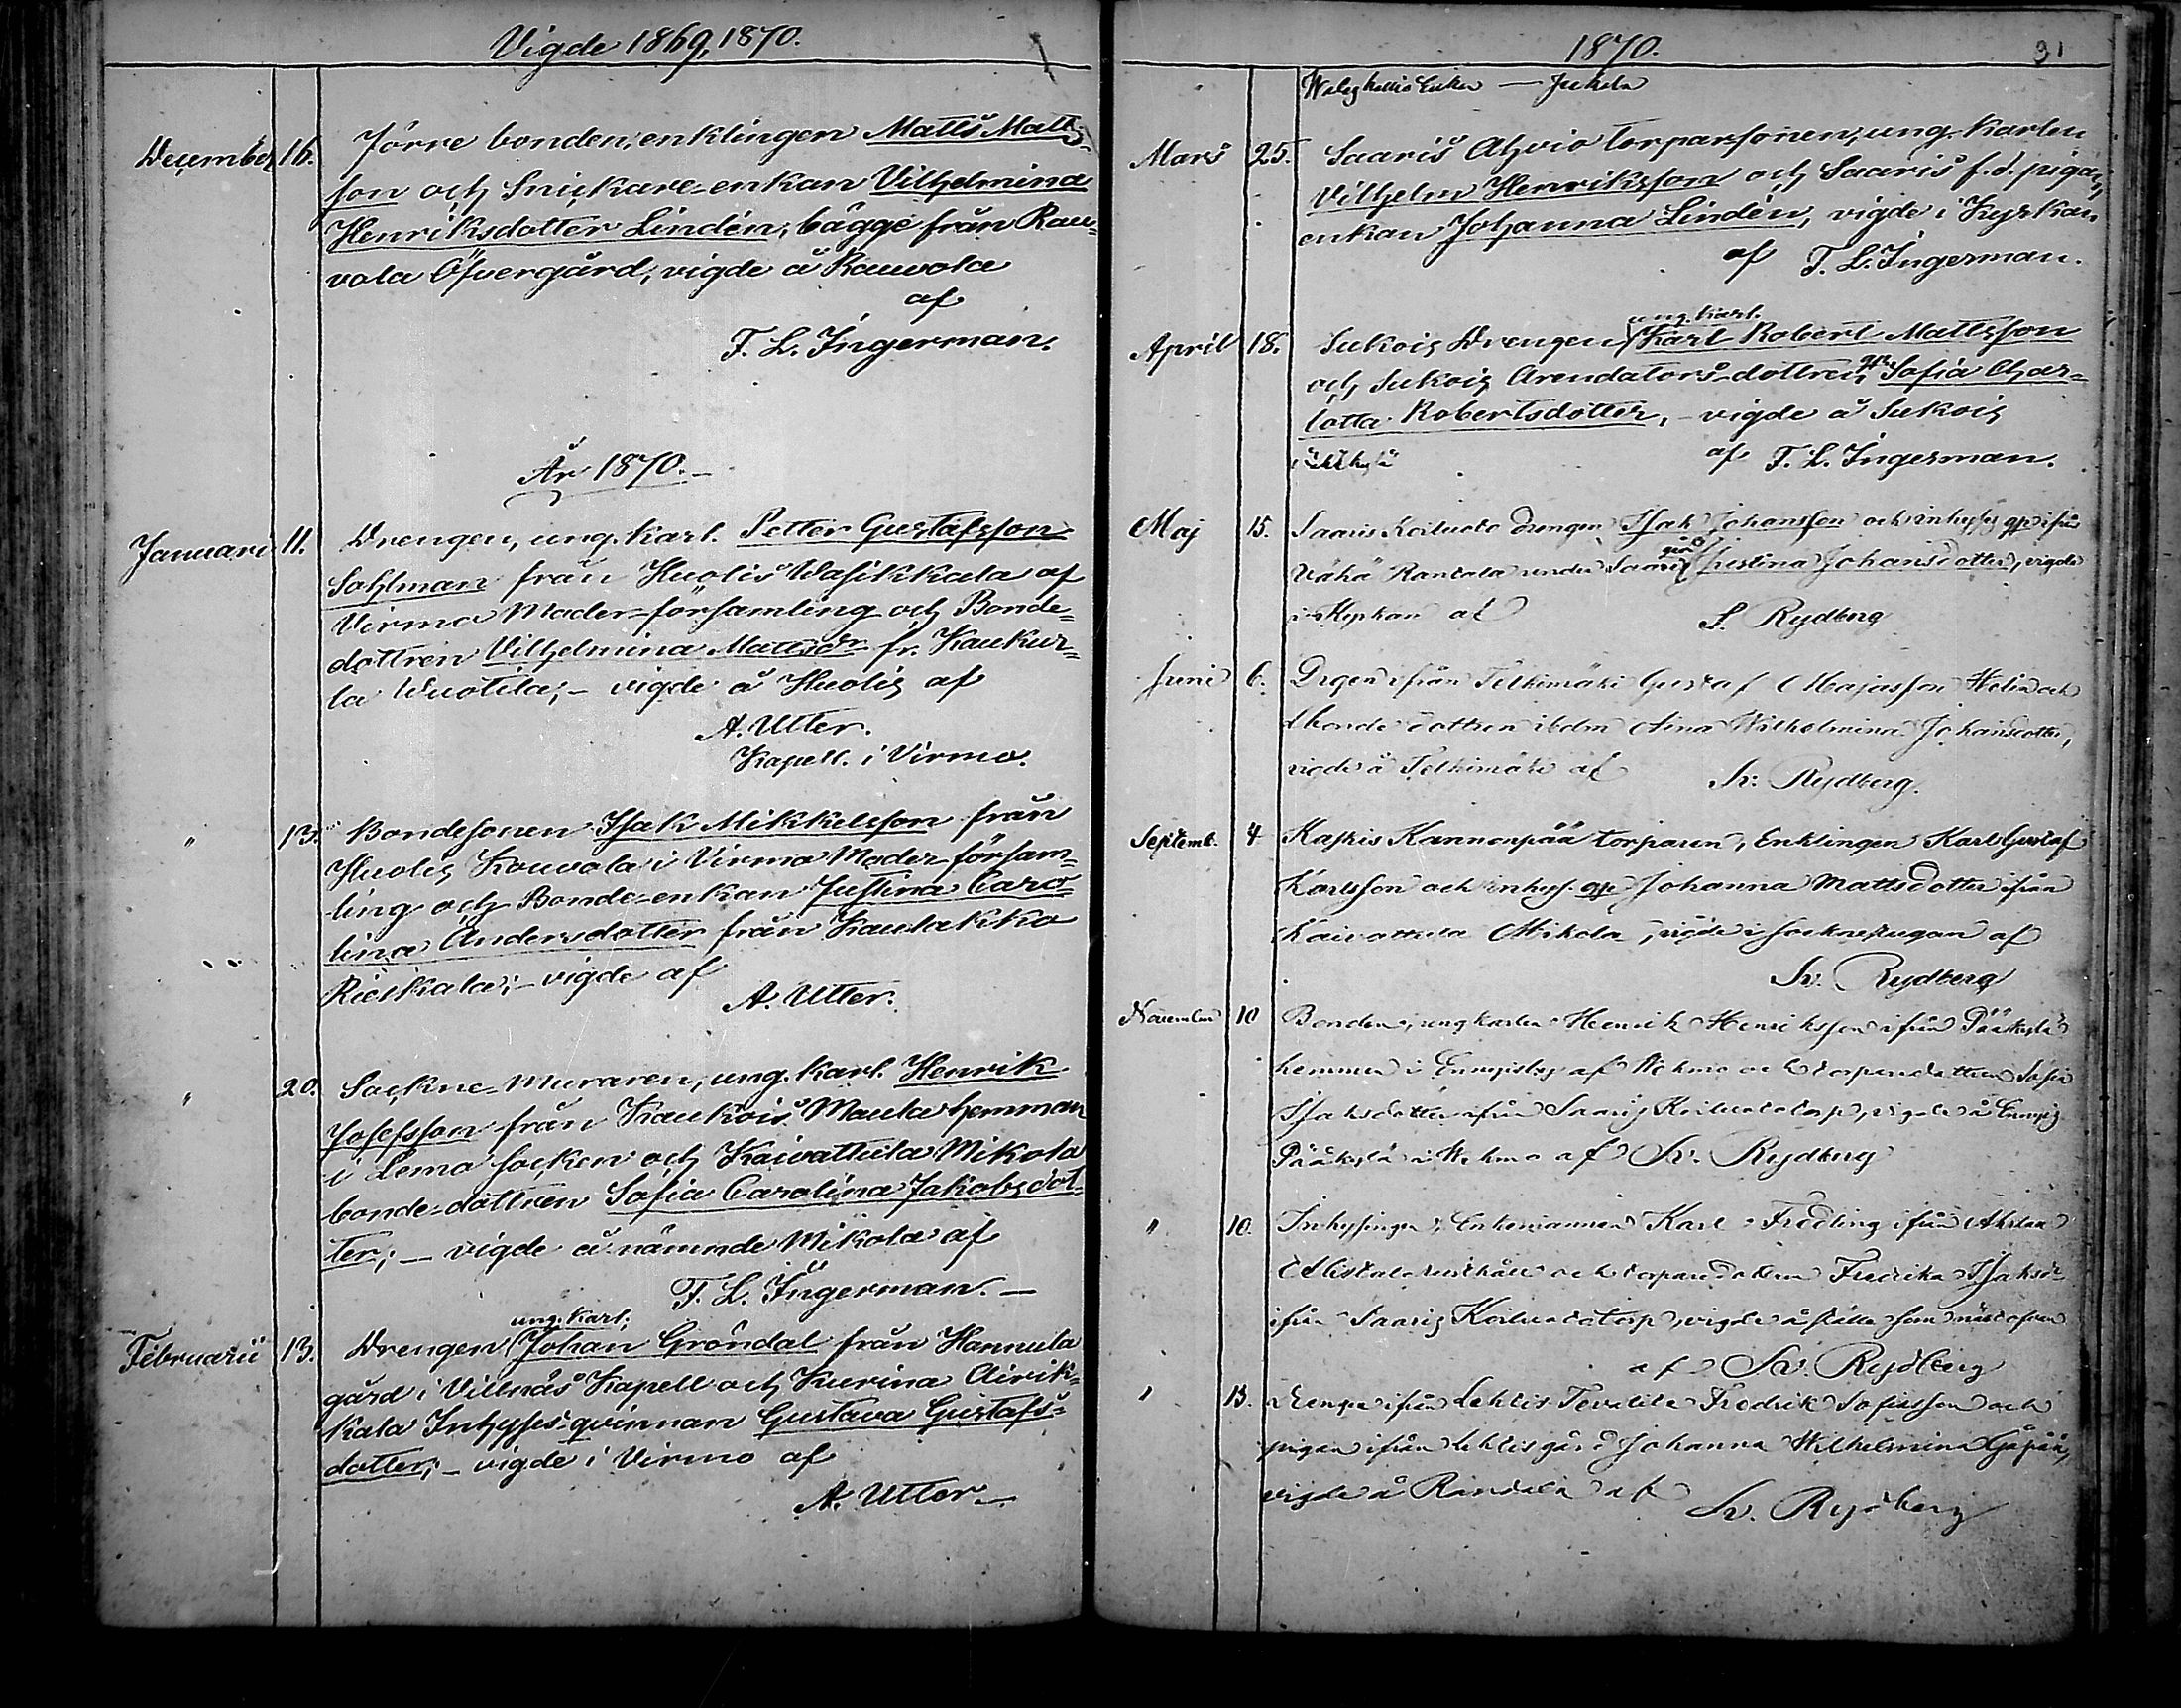 Vigde 1869, 1870.
December 16. Jörre bonden, enklingen Matts Matts-
son och Snickare-enkan Vilhelmina
Henriksdotter Lindén, bägge från Rau-
vola Öfvergård, vigde å Rauvola
af
F. L. Ingerman.
År 1870.
Januari 11. Drengen, ung. karl. Petter Gustafsson
Sohlman från Huolis Wasikkala af
Virmo Moder-församling och Bonde-
dottren Vilhelmina Mattsdr fr. Kaukur-
la Wuotila; - vigde å Huolis af
A. Utter.
Kapell. i Virmo.
" 13. Bondesonen Isak Mikkelsson från
Huolis Kouvola i Virmo Moder-försam-
ling och Bonde-enkan Justina Caro-
lina Andersdotter från Kautakko
Rieskala; - vigde af
A. Utter.
" 20. Sockne-Muraren, ung. karl. Henrik
Josefsson från Kaukois Maula hemman
i Lemo socken och Kaivattula Mikola
bonde-dottren Sofia Carolina Jakobsdot-
ter; - vigde å nämnde Mikola af
F. L. Ingerman. -
ung. karl.
Februarii 13. Drengen Johan Gröndal från Hannula
gård i Villnäs Kapell och Kurina Airik-
kala Inhyses-qvinnan Gustava Gustafs-
dotter; - vigde i Virmo af
A. Utter. -
1870. 31
Mars 25. Saaris Ahvio torparsonen, ung. karlen
Vilhelm Henriksson och Saaris f.d. piga,
enkan Johanna Lindén, vigde i Kyrkan
af F. L. Ingerman.
ung. karl.
April 18. Sukois Drengen Karl Robert Mattsson
och Sukois Arendators-dottren, Sofia Char-
lotta Robertsdotter, - vigde å Sukois
af F. L. Ingerman.
Maj 15. Saaris Koiluoto drengen Isak Johansson och inhyses qp ifrån
Vähä Rantala under Saaris Christina Johansdotter, vigde
i Kyrkan af S. Rydberg
Juni 6. Drgen ifrån Telkimäki Gustaf Majasson Welin och
bonde dottren ibdm Aina Wilhelmina Johansdotter,
vigde å Telkimäki af Sv. Rydberg.
Septemb. 4 Kaskis Kannonpää torparen, Enklingen Karl Gustaf
Karlsson och inhys. qp Johanna Mattsdotter ifrån
Kaivattula Mikola, vigde i socknestugan af
Sv. Rydberg
November 10 Bonden, ungkarlen Henrik Henriksson ifrån Pääkylä
hemman i af Wehmo och torpare dottren Sofia
Isaksdotter ifrån Saaris Koiluoto torp, vigde å
Pääkylä i Wehmo af Sv. Rydberg
" 10. Inhysingen, Enkemannen Karl Fredling ifrån
och torpare dottren Fredrika Isaksdr
ifrån Saaris Koiluoto torp, vigde å ställe som näst ofvan
af Sv. Rydberg
" 13. Drengen ifrån Lehtis Fredrik Josefsson och
pigan ifrån Lehtis gård Johanna Wilhelmina
vigde å af Sv. Rydberg